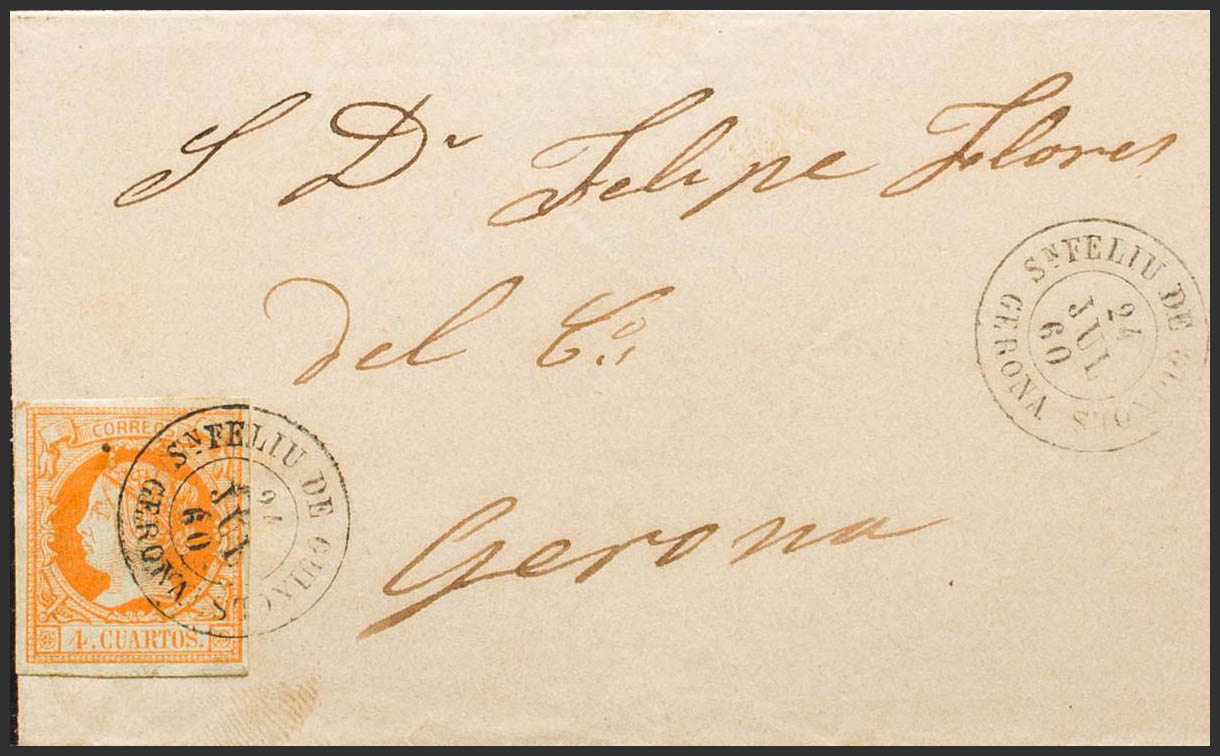 S D.n Felipe Flores
del C.o
Gerona
S.N FELIU DE GUIXOLS
GERONA
24
JUL
60
CORREOS
4. CUARTOS.
S.N FELIU DE GUIXOLS
GERONA
24
JUL
60